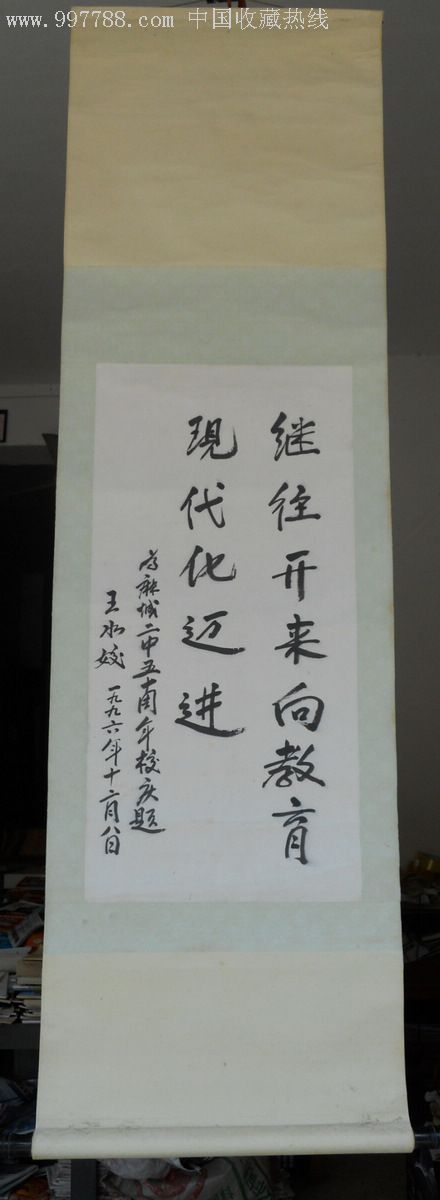 www.997788.com 中国收藏热线
继往开来向教育
現代化迈进
为麻城二中五十周年校庆题
王水姣 一九九六年十二月八日